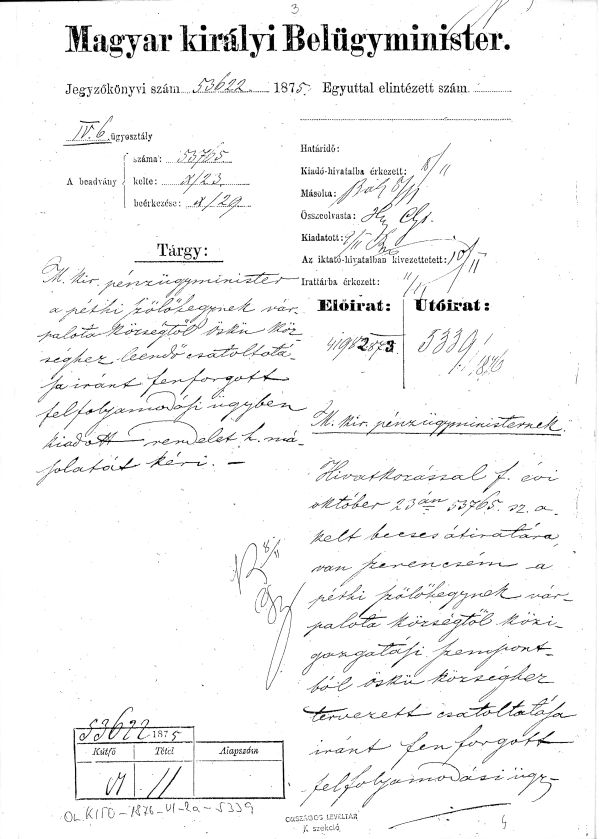 3
Magyar királyi Belügyminister.
Jegyzőkönyvi szám 53622 1875. Egyuttal elintézett szám
IV. 6. ügyosztály
A beadvány
száma: 53765.
kelte: x/23.
beérkezése: x/29.
Tárgy:
M. kir. pénzügyminister
a péthi szőlőhegynek vár-
palota községtől öskü köz-
séghez leendő csatoltatá-
sa iránt fenforgott
felfolyamodási ügyben
kiadott rendelet h. má-
solatát kéri. —
Határidő:
Kiadó-hivatalba érkezett: 8/11
Másolta:
Összeolvasta:
Kiadatott: 9/11
Az iktató-hivatalban kivezettetett: 10/11
Irattárba érkezett: 11/11
Előirat:
Utóirat:
41982/873
5339/1876
M. kir. pénzügyministernek
Hivatkozással f. évi
október 23án 53765. sz. a.
kelt becses átiratára,
van szerencsém a
péthi szőlőhegynek vár-
palota községtől közi-
gazgatási szempont-
ból öskü községhez
tervezett csatoltatása
iránt fenforgott
felfolyamodási ügy-
8/11
53622 1875
Kútfő
Tétel
Alapszám
VI
11
OL K150-1876-VI-2a-5339
ORSZÁGOS LEVÉLTÁR
K szekció